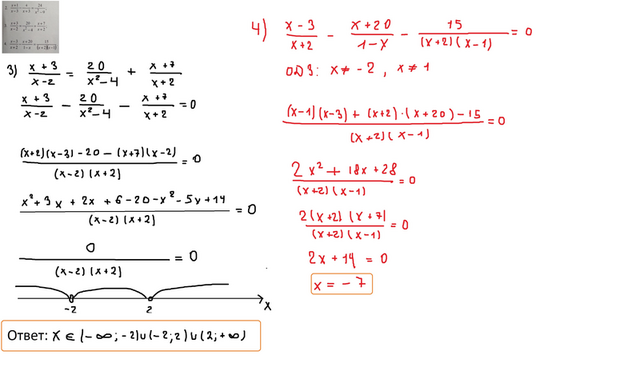 3) (x + 3)/(x - 2) = 20/(x² - 4) + (x + 7)/(x + 2)
(x + 3)/(x - 2) - 20/(x² - 4) - (x + 7)/(x + 2) = 0
((x+2)(x-3) - 20 - (x+7)(x-2))/((x-2)(x+2)) = 0
(x² + 3x + 2x + 6 - 20 - x² - 5x + 14)/((x-2)(x+2)) = 0
0/((x-2)(x+2)) = 0
-2 2 x
Ответ: x ∈ (-∞; -2)∪(-2; 2)∪(2; +∞)
4) (x - 3)/(x + 2) - (x + 20)/(1 - x) - 15/((x+2)(x-1)) = 0
ОДЗ: x ≠ -2, x ≠ 1
((x-1)(x-3) + (x+2)·(x+20) - 15)/((x+2)(x-1)) = 0
(2x² + 18x + 28)/((x+2)(x-1)) = 0
2(x+2)(x+7)/((x+2)(x-1)) = 0
2x + 14 = 0
x = -7